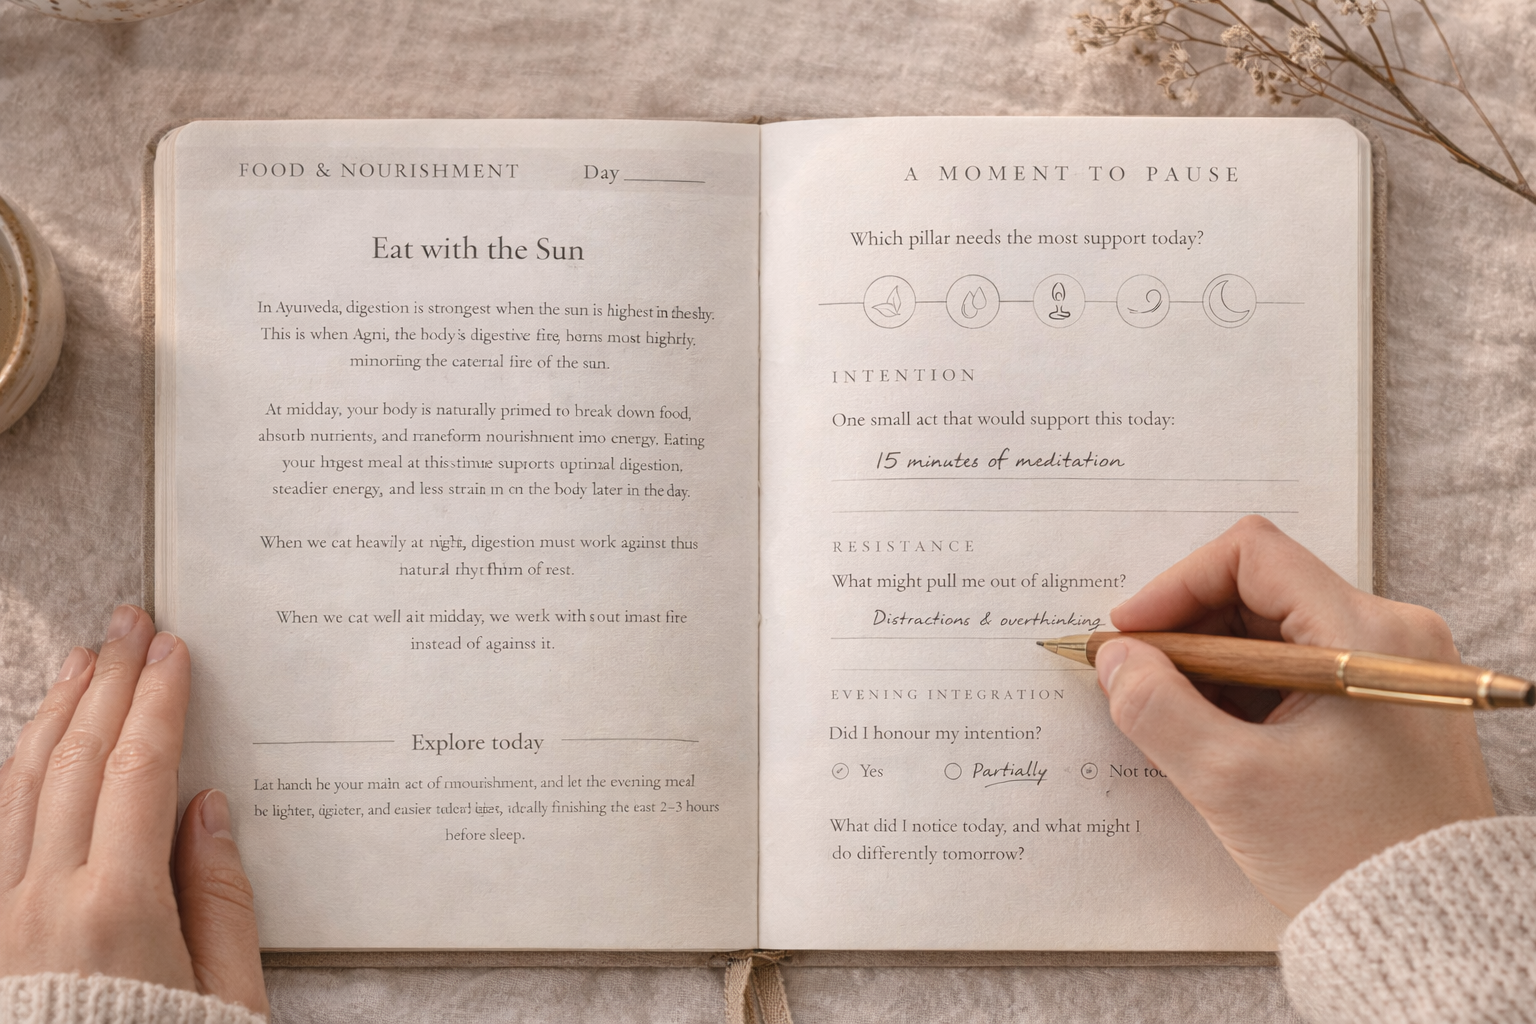 FOOD & NOURISHMENT Day
Eat with the Sun
In Ayurveda, digestion is strongest when the sun is highest in the sky.
This is when Agni, the body's digestive fire, borns most highrly.
the fire of the sun.
At midday, your body is naturally primed to break down food,
absorb nutrients, and rraneform nourishment imo energy. Eating
your meal at this digestion,
steadier energy, and less strain m cn the body later in the day.
When we cat heavily at night, digestion must work against thus
natural of rest.
When we cat well ait midday, we werk with sout imast fire
instead of against it.
Explore today
Lat be your main act of and let the evening meal
be lighter, and easier ideally finishing the east 2–3 hours
before sleep.
A MOMENT TO PAUSE
Which pillar needs the most support today?
INTENTION
One small act that would support this today:
15 minutes of meditation
RESISTANCE
What might pull me out of alignment?
Distractions & overthinking
EVENING INTEGRATION
Did I honour my intention?
Yes Partially Not
What did I notice today, and what might I
do differently tomorrow?